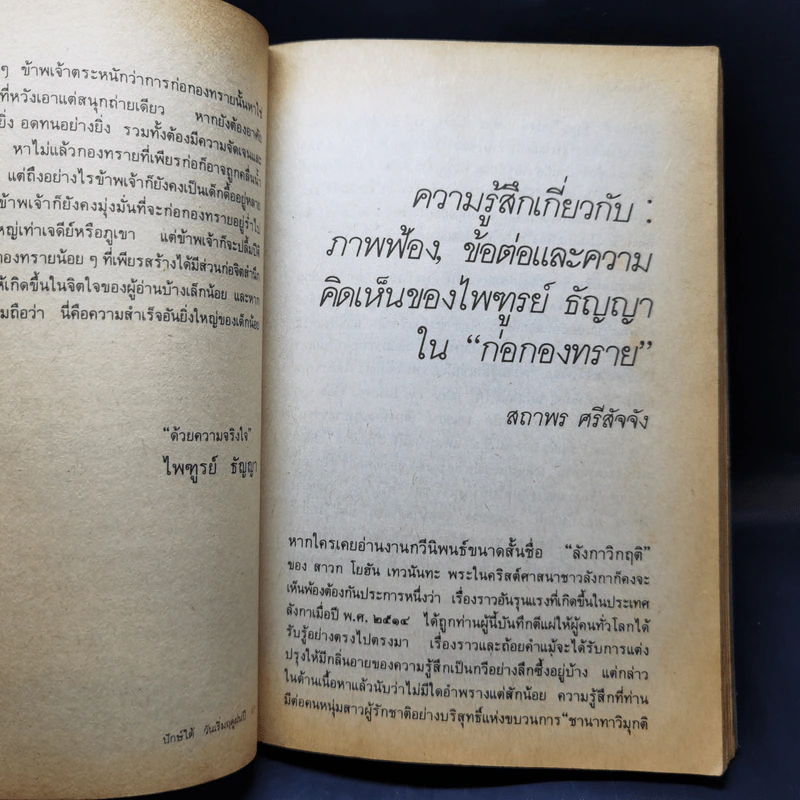 ๆ ข้าพเจ้าตระหนักว่าการก่อกองทรายนั้นหาใช่
ที่หวังเอาแต่สนุกถ่ายเดียว หากยังต้องอาศัย
ยิ่ง อดทนอย่างยิ่ง รวมทั้งต้องมีความจัดเจนและ
หาไม่แล้วกองทรายที่เพียรก่อก็อาจถูกคลื่นน้ำ
แต่ถึงอย่างไรข้าพเจ้าก็ยังคงเป็นเด็กดื้ออยู่หลาย
ข้าพเจ้าก็ยังคงมุ่งมั่นที่จะก่อกองทรายอยู่ร่ำไป
หญ่เท่าเจดีย์หรือภูเขา แต่ข้าพเจ้าก็จะปลื้มปีติ
กองทรายน้อย ๆ ที่เพียรสร้างได้มีส่วนก่อจิตสำนึก
ห้เกิดขึ้นในจิตใจของผู้อ่านบ้างเล็กน้อย และหาก
มถือว่า นี่คือความสำเร็จอันยิ่งใหญ่ของเด็กน้อย
"ด้วยความจริงใจ"
ไพฑูรย์ ธัญญา
ปักษ์ใต้ วันเริ่มฤดูฝนปี
ความรู้สึกเกี่ยวกับ :
ภาพฟ้อง, ข้อต่อและความ
คิดเห็นของไพฑูรย์ ธัญญา
ใน "ก่อกองทราย"
สถาพร ศรีสัจจัง
หากใครเคยอ่านงานกวีนิพนธ์ขนาดสั้นชื่อ "ลังกาวิกฤติ"
ของ สาวก โยฮัน เทวนันทะ พระในคริสต์ศาสนาชาวลังกาก็คงจะ
เห็นพ้องต้องกันประการหนึ่งว่า เรื่องราวอันรุนแรงที่เกิดขึ้นในประเทศ
ลังกาเมื่อปี พ.ศ. ๒๕๑๔ ได้ถูกท่านผู้นี้บันทึกตีแผ่ให้ผู้คนทั่วโลกได้
รับรู้อย่างตรงไปตรงมา เรื่องราวและถ้อยคำแม้จะได้รับการแต่ง
ปรุงให้มีกลิ่นอายของความรู้สึกเป็นกวีอย่างลึกซึ้งอยู่บ้าง แต่กล่าว
ในด้านเนื้อหาแล้วนับว่าไม่มีใดอำพรางแต่สักน้อย ความรู้สึกที่ท่าน
มีต่อคนหนุ่มสาวผู้รักชาติอย่างบริสุทธิ์แห่งขบวนการ "ชานาทาวิมุกติ